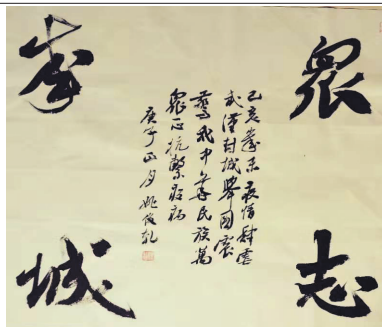 眾志
成城
己亥歲末疫情肆虐
武漢封城舉國震
驚我中華民族萬
眾一心抗擊疫病
庚子正月